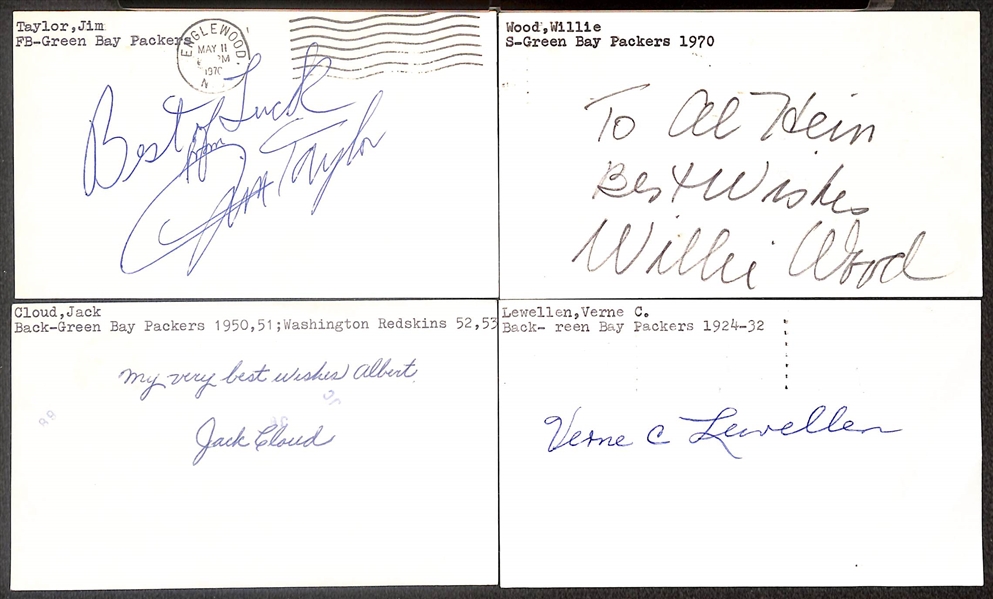 Taylor,Jim
FB-Green Bay Packers
ENGLEWOOD,
MAY 11
PM
1970
N
Best of Luck
from
Jim Taylor
Wood,Willie
S-Green Bay Packers 1970
To Al Hein
Best Wishes
Willie Wood
Cloud,Jack
Back-Green Bay Packers 1950,51;Washington Redskins 52,53
My very best wishes Albert
Jack Cloud
Lewellen,Verne C.
Back- reen Bay Packers 1924-32
Verne C Lewellen